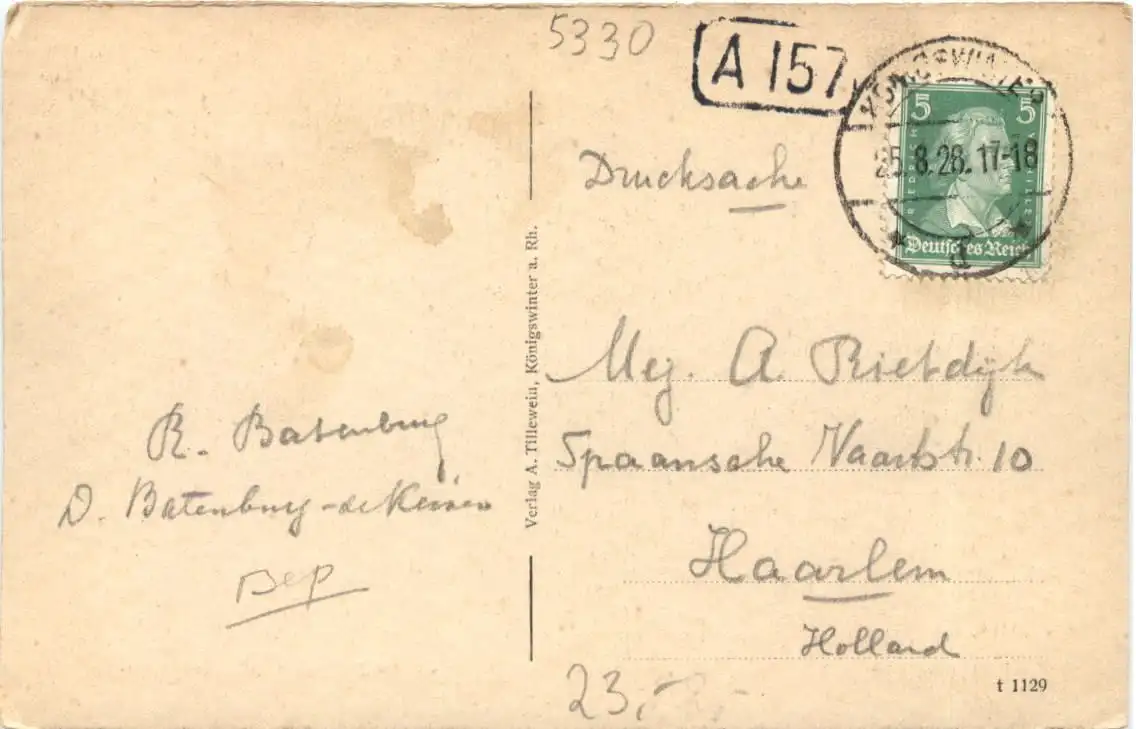 5330
A 157
KÖNIGSWINTER
25.8.28.17-18
d
5 5
FRIEDRICH V. SCHILLER
Deutsches Reich
Drucksache
Mej. A. Rietdijk
Spaansche Vaartstr. 10
Haarlem
Holland
R. Batenburg
D. Batenburg-de
Bep
Verlag A. Tillewein, Königswinter a. Rh.
23,-
t 1129